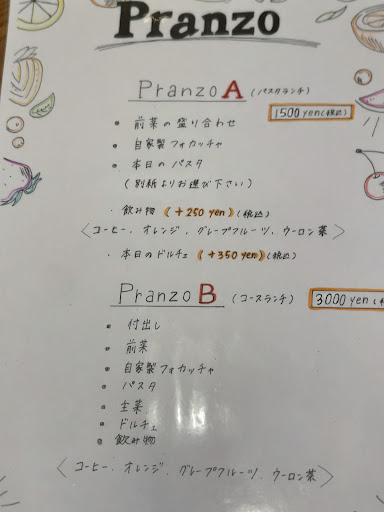 Pranzo
Pranzo A (パスタランチ)
1500 yen (税込)
• 前菜の盛り合わせ
• 自家製フォカッチャ
• 本日のパスタ
(別紙よりお選び下さい)
・飲み物 《+250 yen》(税込)
〈コーヒー、オレンジ、グレープフルーツ、ウーロン茶〉
・本日のドルチェ 《+350 yen》(税込)
Pranzo B (コースランチ)
3000 yen (
• 付出し
• 前菜
• 自家製フォカッチャ
• パスタ
• 主菜
• ドルチェ
• 飲み物
〈コーヒー、オレンジ、グレープフルーツ、ウーロン茶〉